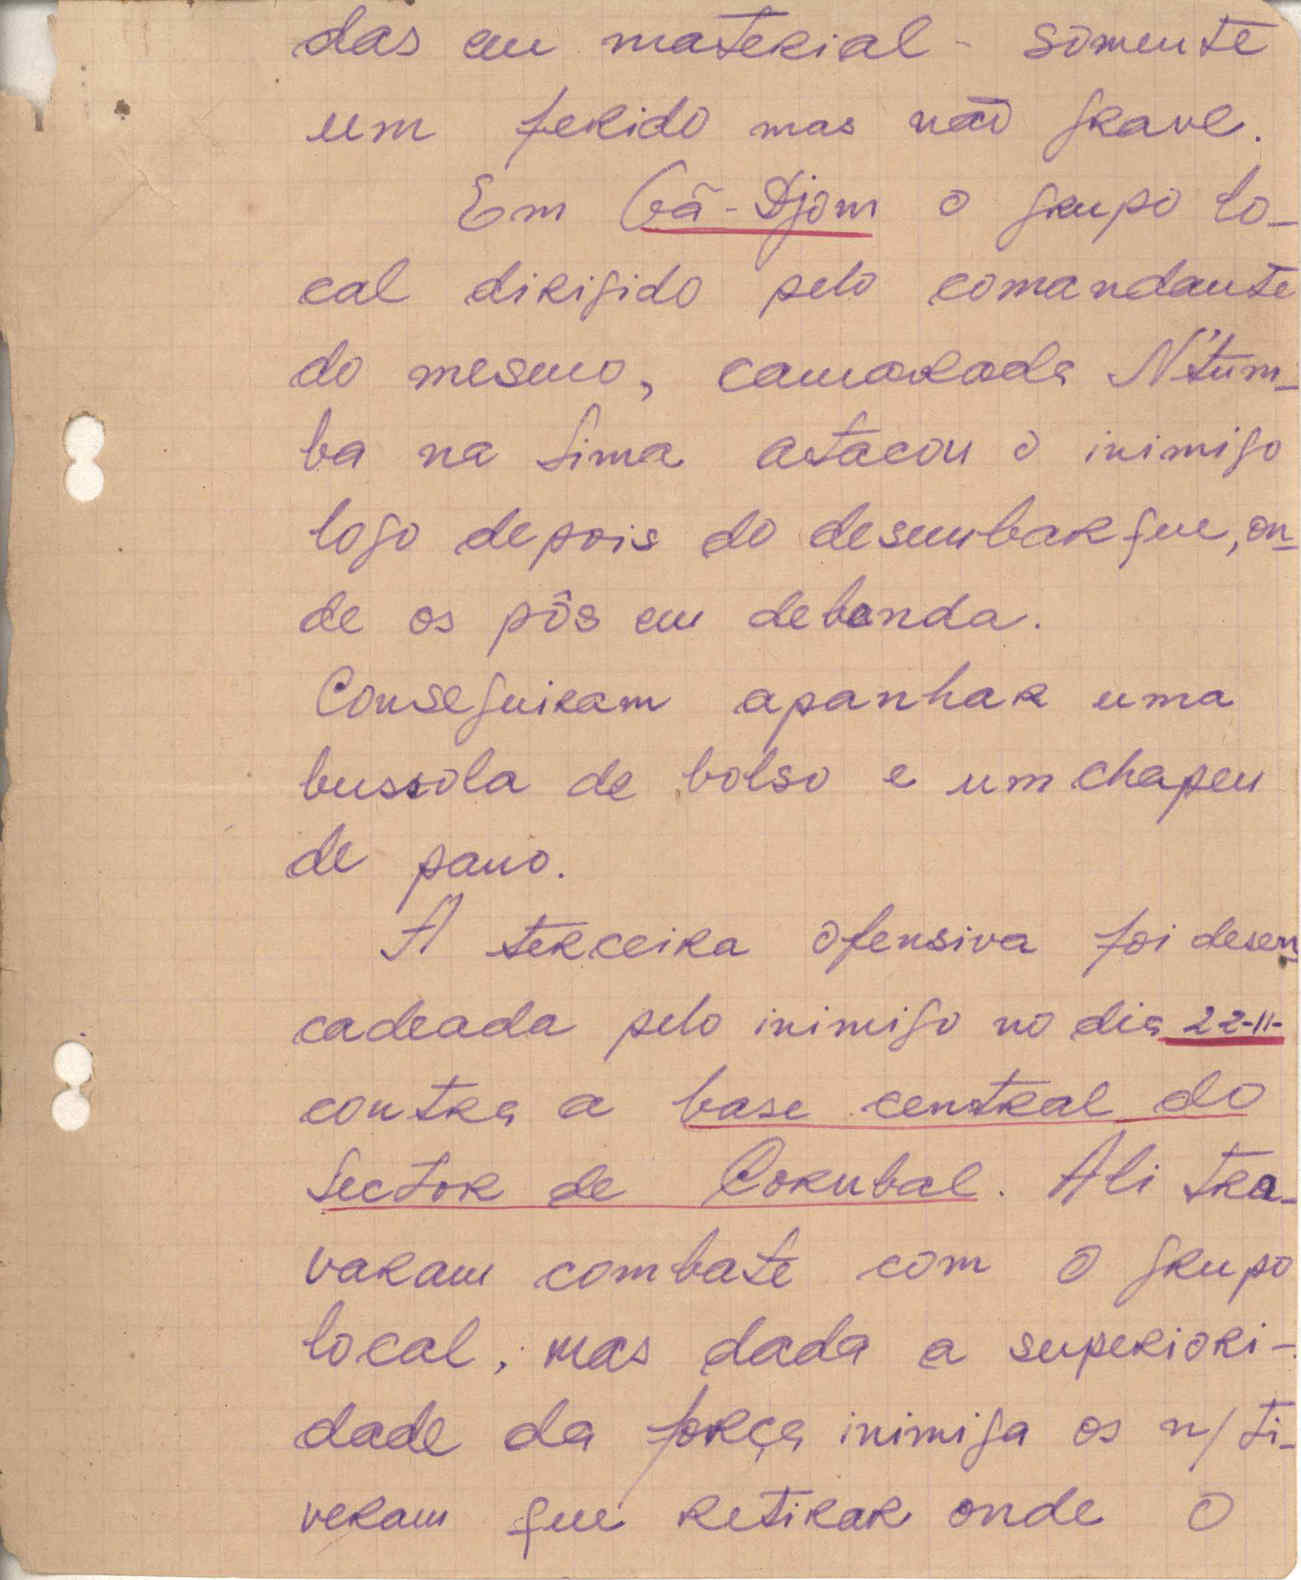 das em material - sòmente
um ferido mas não grave.
Em Gã-Djom o grupo lo-
cal dirigido pelo comandante
do mesmo, camarada N'tum-
ba na Sima atacou o inimigo
logo depois do desembarque, on-
de os pôs em debanda.
Conseguiram apanhar uma
bussola de bolso e um chapeu
de pano.
A terceira ofensiva foi desen-
cadeada pelo inimigo no dia 22-11-
contra a base central do
Sector de Corubal. Ali tra-
varam combate com o grupo
local, mas dada a superiori-
dade da força inimiga os n/ ti-
veram que retirar onde o